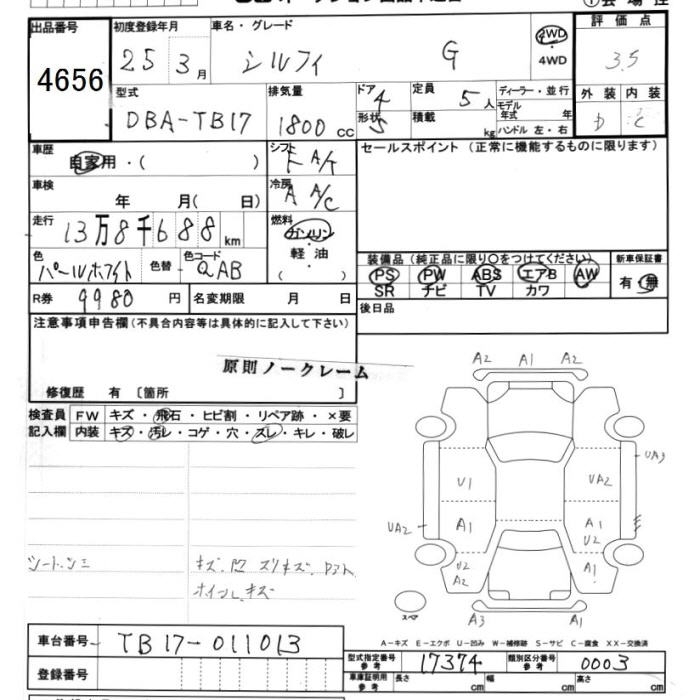 出品番号 初度登録年月 車名・グレード 2WD 評価点
4656 25年 3月 シルフィ G ・4WD 3.5
型式 排気量 ドア 4 定員 5人 ディーラー・並行 外装 内装
DBA-TB17 1800cc 形状 5 積載 kg モデル年式 年 D C
ハンドル 左・右
車歴 自家用・( ) シフト F A/T セールスポイント (正常に機能するものに限ります)
車検 年 月( 日) 冷房 A A/C
走行 13万8千688km 燃料 ガソリン
軽・油
( )
色 パールホワイト 色替 色コード QAB 装備品 (純正品に限り○をつけてください) 新車保証書
PS PW ABS エアB AW 有・無
SR ナビ TV カワ
R券 9980円 名変期限 月 日 後日品
注意事項申告欄(不具合内容等は具体的に記入して下さい)
原則ノークレーム
修復歴 有 〔箇所 〕
検査員 FW キズ・飛石・ヒビ割・リペア跡・×要
記入欄 内装 キズ・汚レ・コゲ・穴・スレ・キレ・破レ
A2 A1 A2
UA3
U1 UA2
UA2 A1 A1
U2
U2 A1
A2
スペア A3 A1
シートシミ キズ凹スリキズ
ホイールキズ
A-キズ E-エクボ U-凹み W-補修跡 S-サビ C-腐食 XX-交換済
車台番号 TB17-011013 型式指定番号 参考 17374 類別区分番号 参考 0003
登録番号 車庫証明用 参考 長さ cm 幅 cm 高さ cm